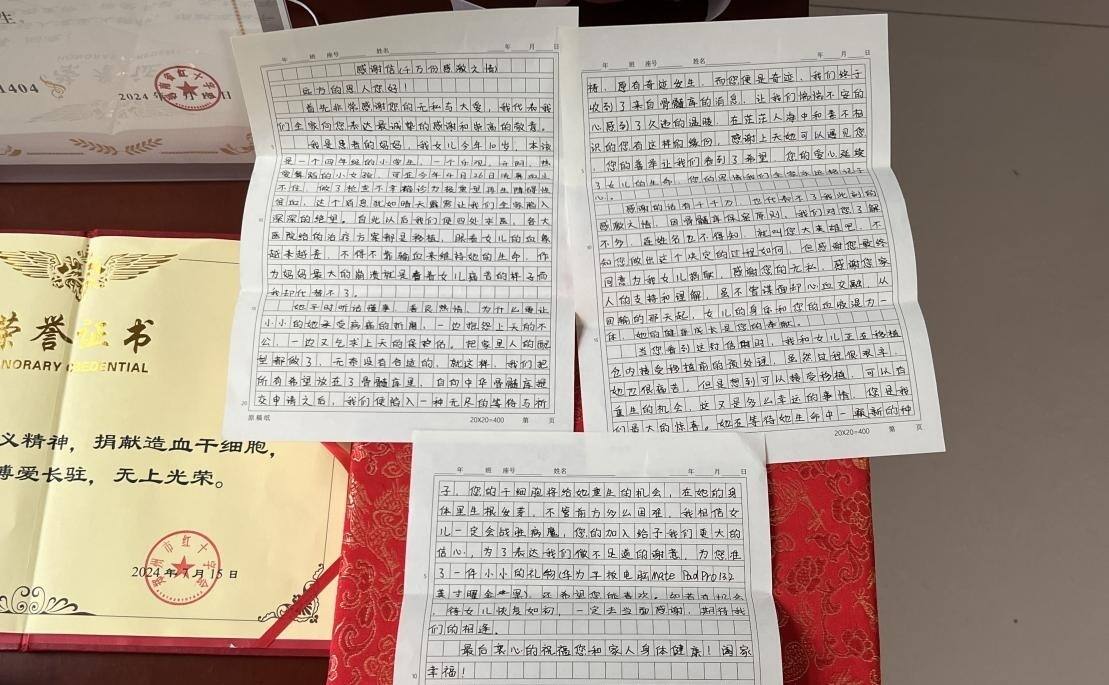 生。
荣誉证
HONORARY CREDENTIAL
1404
2024年 月 日
荣誉证书
HONORARY CREDENTIAL
义精神，捐献造血干细胞，
博爱长驻，无上光荣。
市红十字会
2024年7月15日
年 班 座号 姓名 年 月 日
感谢信(千万份感激之情)
远方的恩人您好！
首先非常感谢您的无私与大爱，我代表我
们全家向您表达最诚挚的感谢和崇高的敬意。
我是患者的妈妈，我女儿今年10岁，本该
是一个四年级的小学生，一个乐观、开朗、热
爱舞蹈的小女孩，可在今年4月26日流鼻血止
不住，做了检查不幸确诊为极重型再生障碍性
贫血，这个消息犹如晴天霹雳让我们全家陷入
深深的绝望。自此以后我们便四处求医，各大
医院给的治疗方案都是移植，眼看女儿的血象
越来越差，不得不靠输血来维持她的生命，作
为妈妈最大的崩溃就是看着女儿痛苦的样子而
我却代替不了。
她平时听话懂事，善良热情，为什么要让
小小的她承受病痛的折磨，一边抱怨上天的不
公，一边又乞求上天的保护佑。把家里人的配
型都做了，无奈没有合适的，就这样，我们把
所有希望放在了骨髓库里，自向中华骨髓库提
交申请之后，我们便陷入一种无尽的等待与祈
20
原稿纸 20X20=400 第 页
年 班 座号 姓名 年 月 日
祷，原有奇迹发生，而您便是奇迹，我们终于
收到了来自骨髓库的消息，让我们惴惴不安的
心感到了久违的温暖，在茫茫人海中和素不相
识的您有这样的缘何，感谢上天她可以遇见您
，您的善举让我们看到了希望，您的爱心延续
了女儿的生命，您的恩情我们全家永远铭记于
心。
感谢的话有千千万，也代表不了我此刻的
感激之情，因骨髓库保密原则，我们对您了解
不多，连姓名也不得知，就叫您大英雄吧，不
知您做出这个决定的过程如何，但感谢您最终
同意为我女儿捐献，感谢您的无私，感谢您家
人的支持和理解，虽不曾谋面却心血交融，从
回输的那天起，女儿的身体和您的血液混为一
体，她的健康成长是您的奉献。
当您看到这封信期时，我和女儿正在移植
仓内接受移植前的预处理，虽然过程很艰辛，
她也很痛苦，但是想到可以接受移植，可以有
重生的机会，这又是多么幸运的事情，您是我
们最大的惊喜。她在等待她生命中一颗新的种
20X20=400 第 页
年 班 座号 姓名 年 月 日
子，您的干细胞将给她重生的机会，在她的身
体里生根发芽，不管前方多么困难，我相信女
儿一定会战胜病魔，您的加入给予我们更大的
信心，为了表达我们微不足道的谢意，为您准
了一件小小的礼物(华为平板电脑Mate Pad Pro13.2
英寸曜金黑)，还希望您能喜欢。如若有机会
，待女儿恢复如初，一定去当面感谢，期待我
们的相逢。
最后衷心的祝福您和家人身体健康！阖家
幸福！